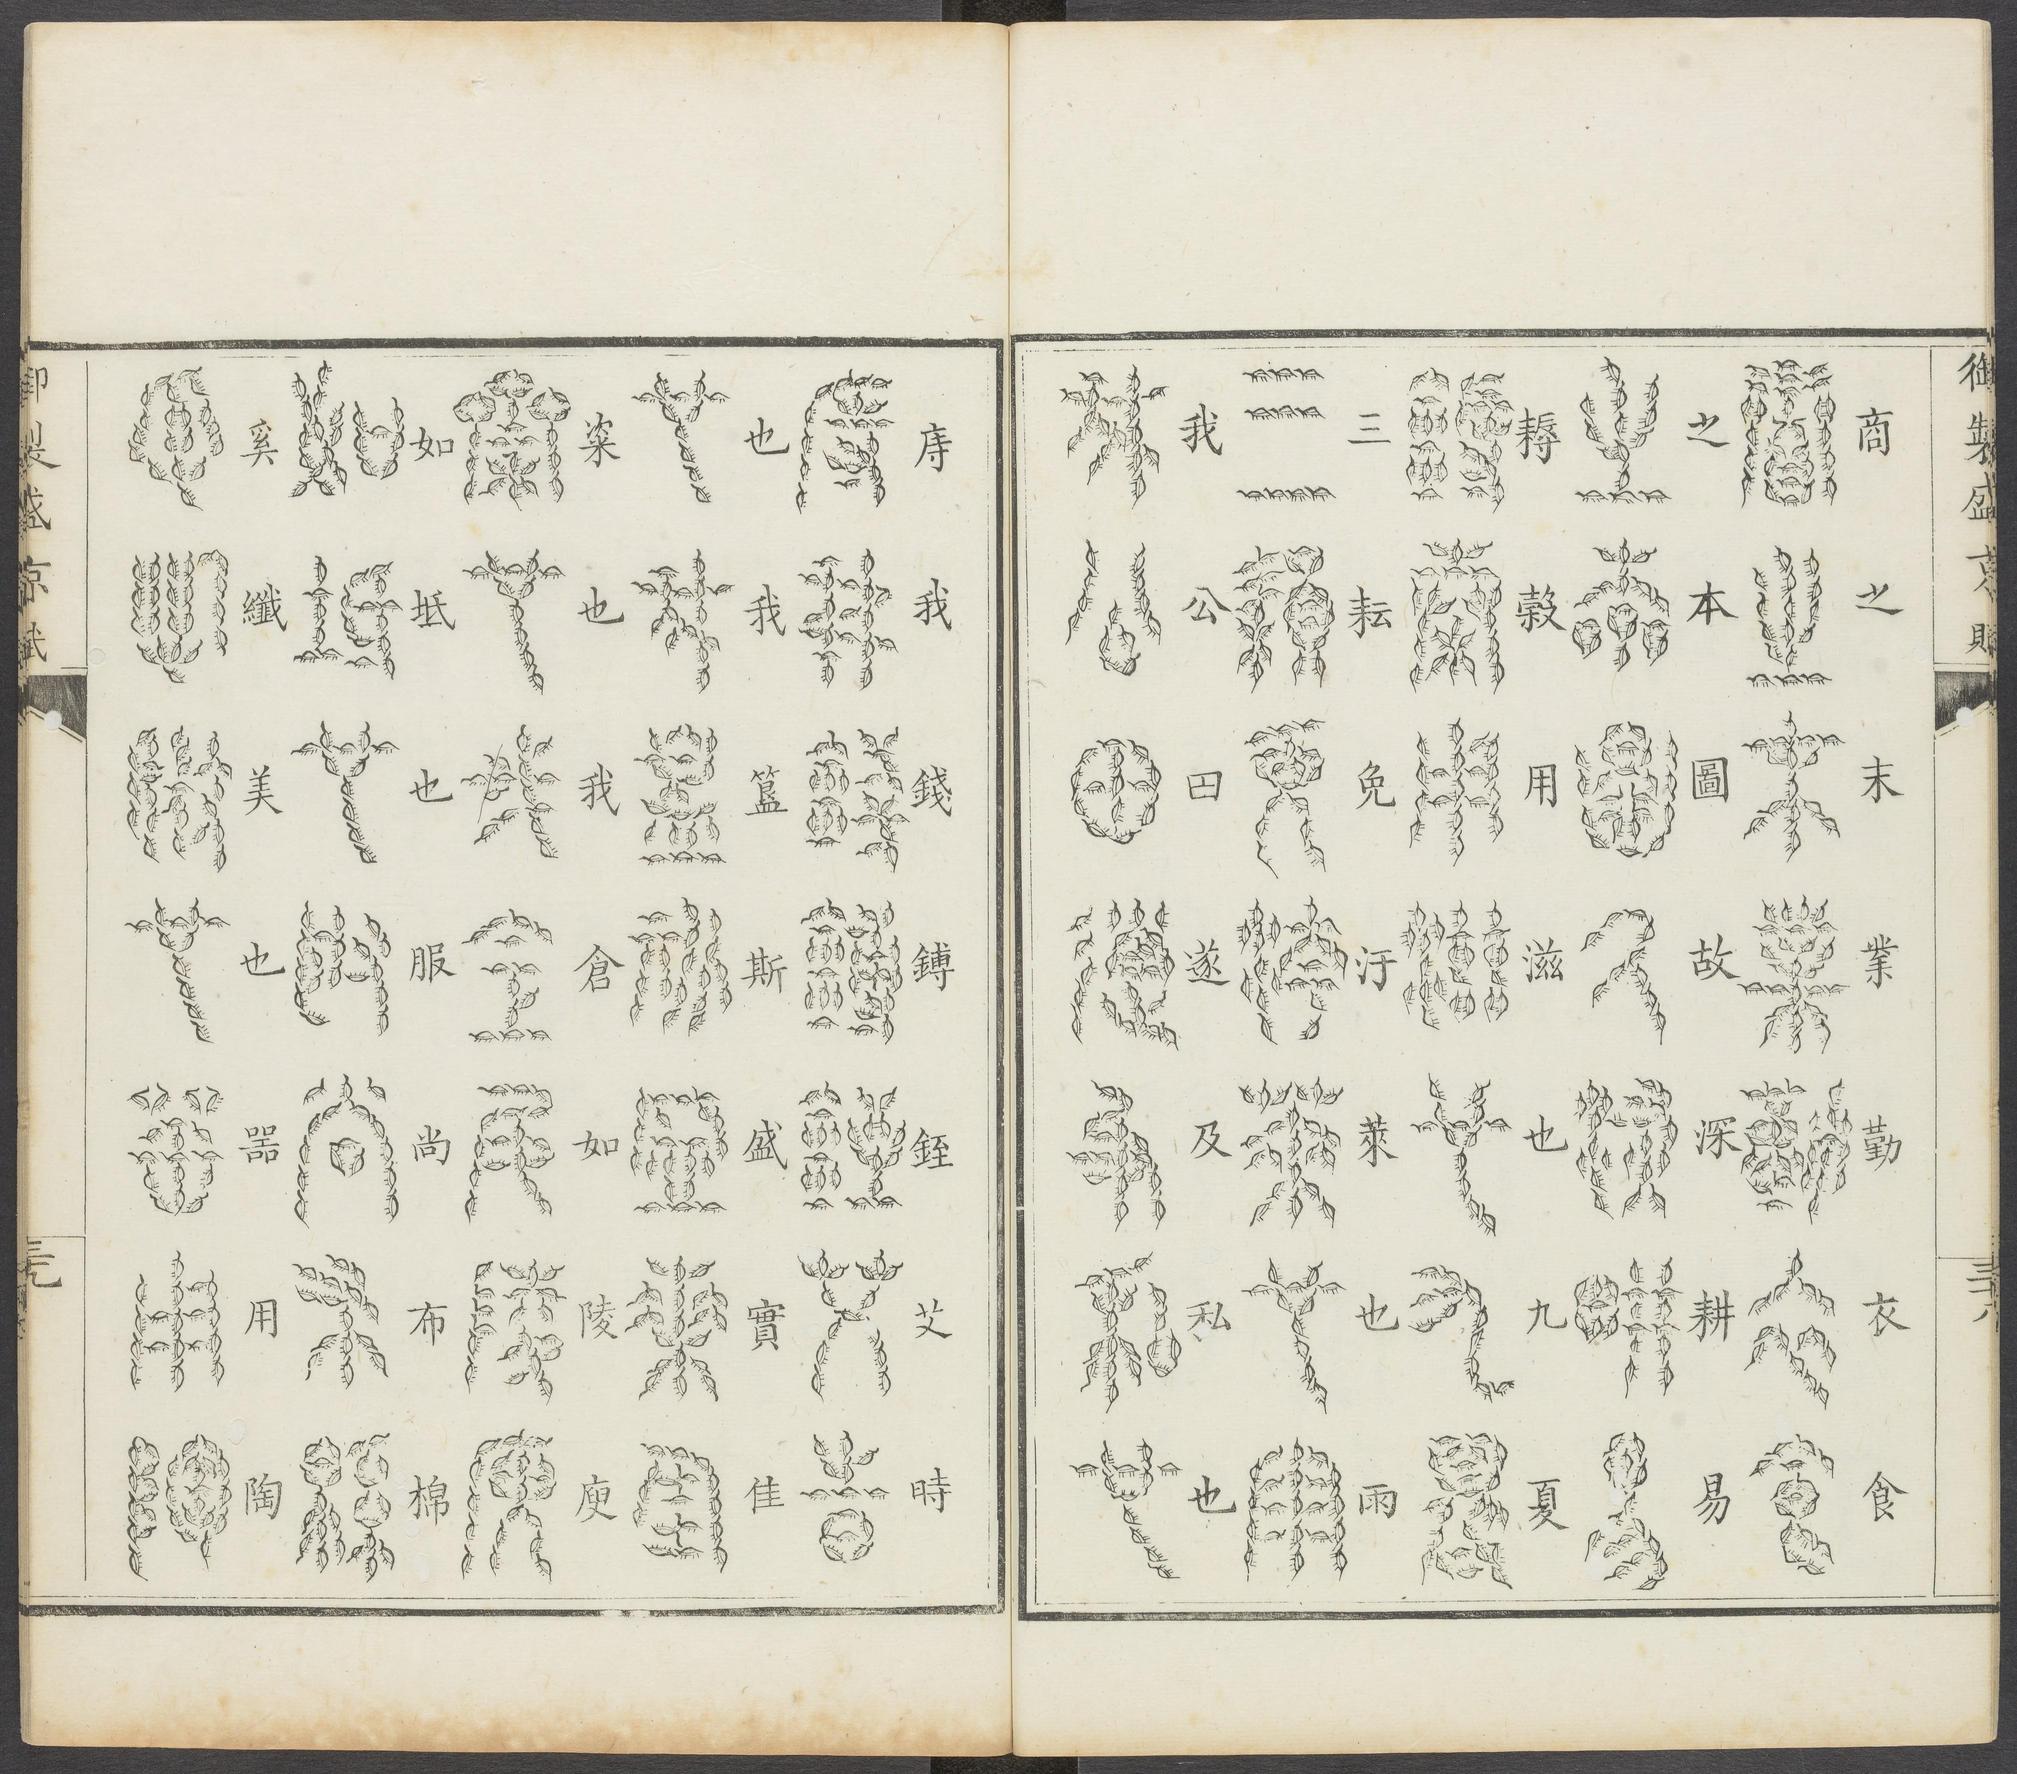 御製盛京賦
三十八
商之末業勤衣食
之本圖故深耕易
耨穀用滋也九夏
三耘免汙萊也雨
我公田遂及私也
庤我錢鎛銍艾時
也我簋斯盛實佳
粢也我倉如陵庾
如坻也服尚布棉
奚纖美也器用陶
御製盛京賦